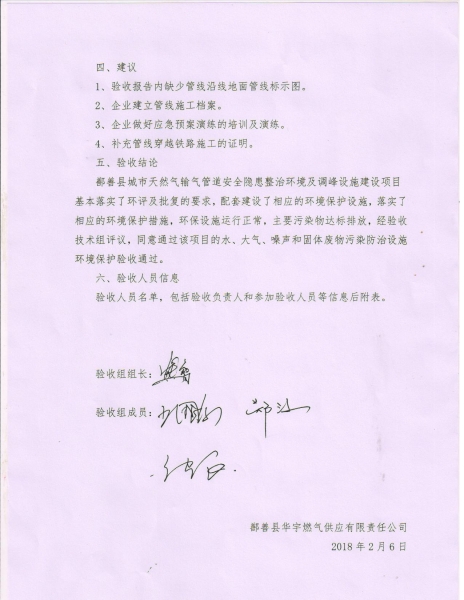 四、建议
1、验收报告内缺少管线沿线地面管线标示图。
2、企业建立管线施工档案。
3、企业做好应急预案演练的培训及演练。
4、补充管线穿越铁路施工的证明。
五、验收结论
鄯善县城市天然气输气管道安全隐患整治环境及调峰设施建设项目
基本落实了环评及批复的要求，配套建设了相应的环境保护设施，落实了
相应的环境保护措施，环保设施运行正常，主要污染物达标排放，经验收
技术组评议，同意通过该项目的水、大气、噪声和固体废物污染防治设施
环境保护验收通过。
六、验收人员信息
验收人员名单，包括验收负责人和参加验收人员等信息后附表。
验收组组长：
验收组成员：
鄯善县华宇燃气供应有限责任公司
2018 年 2 月 6 日